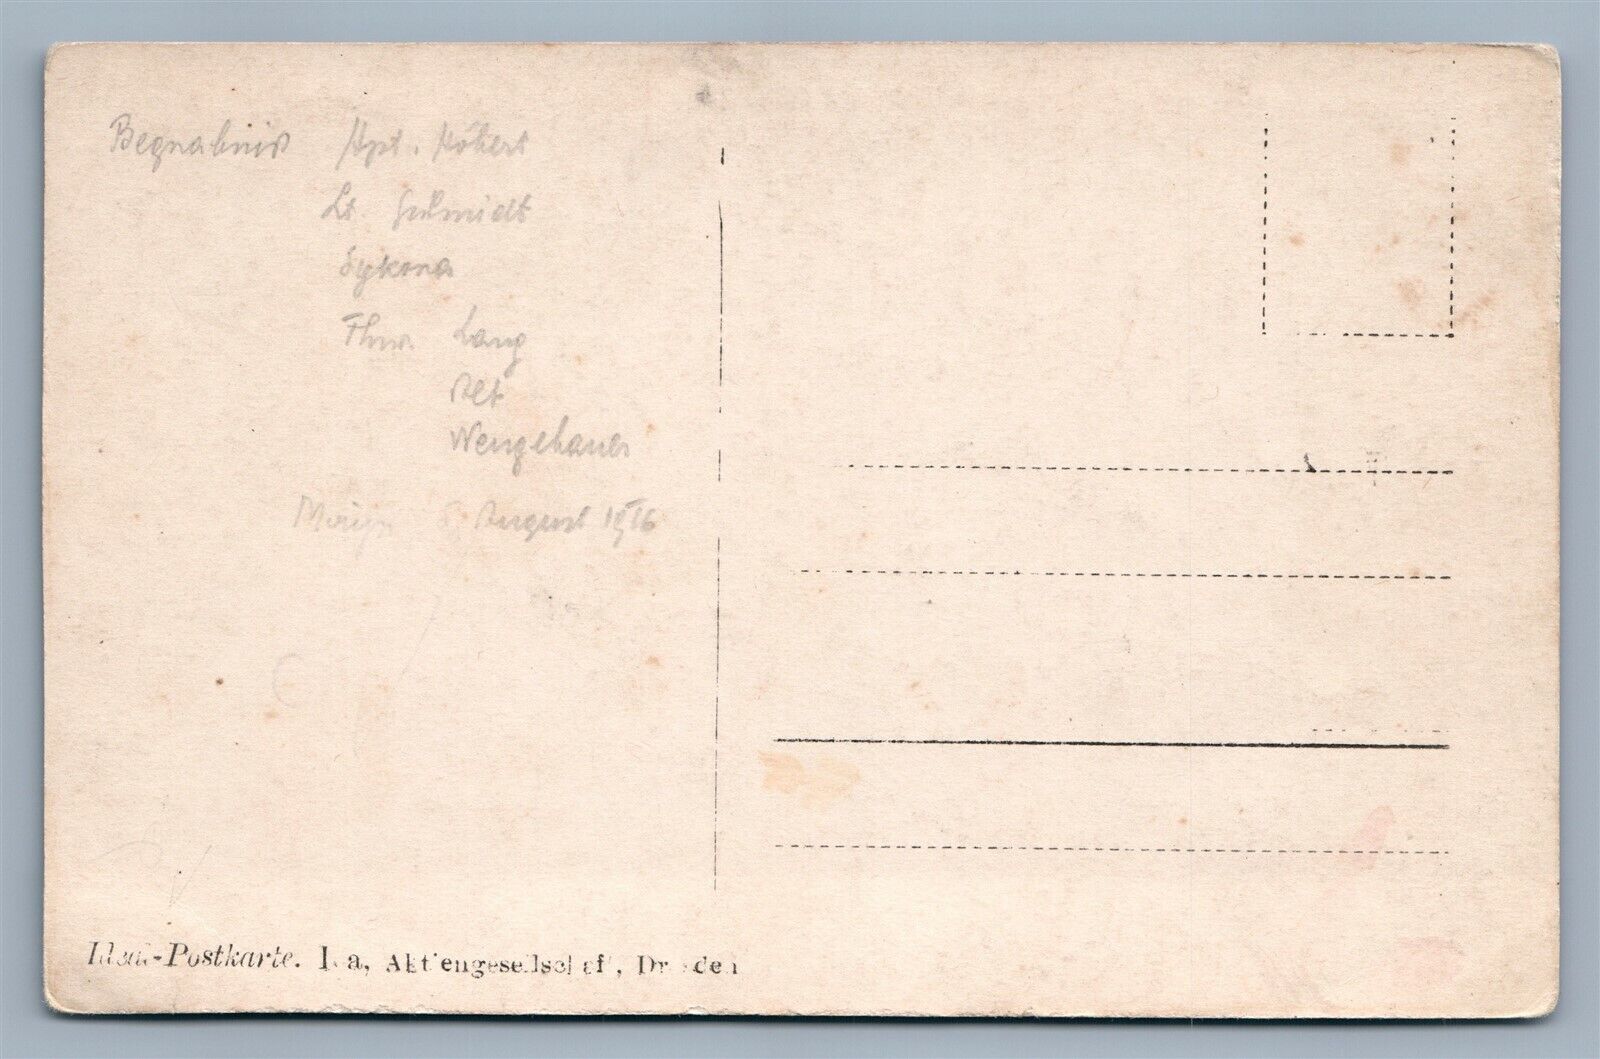 Begnabniß Hpt. Köhert
Lt. Schmidt
Sykora
Fhnr. Lang
Alt
Wengehauer
August 1916
Ideal-Postkarte. Ika, Aktiengesellschaft, Dresden